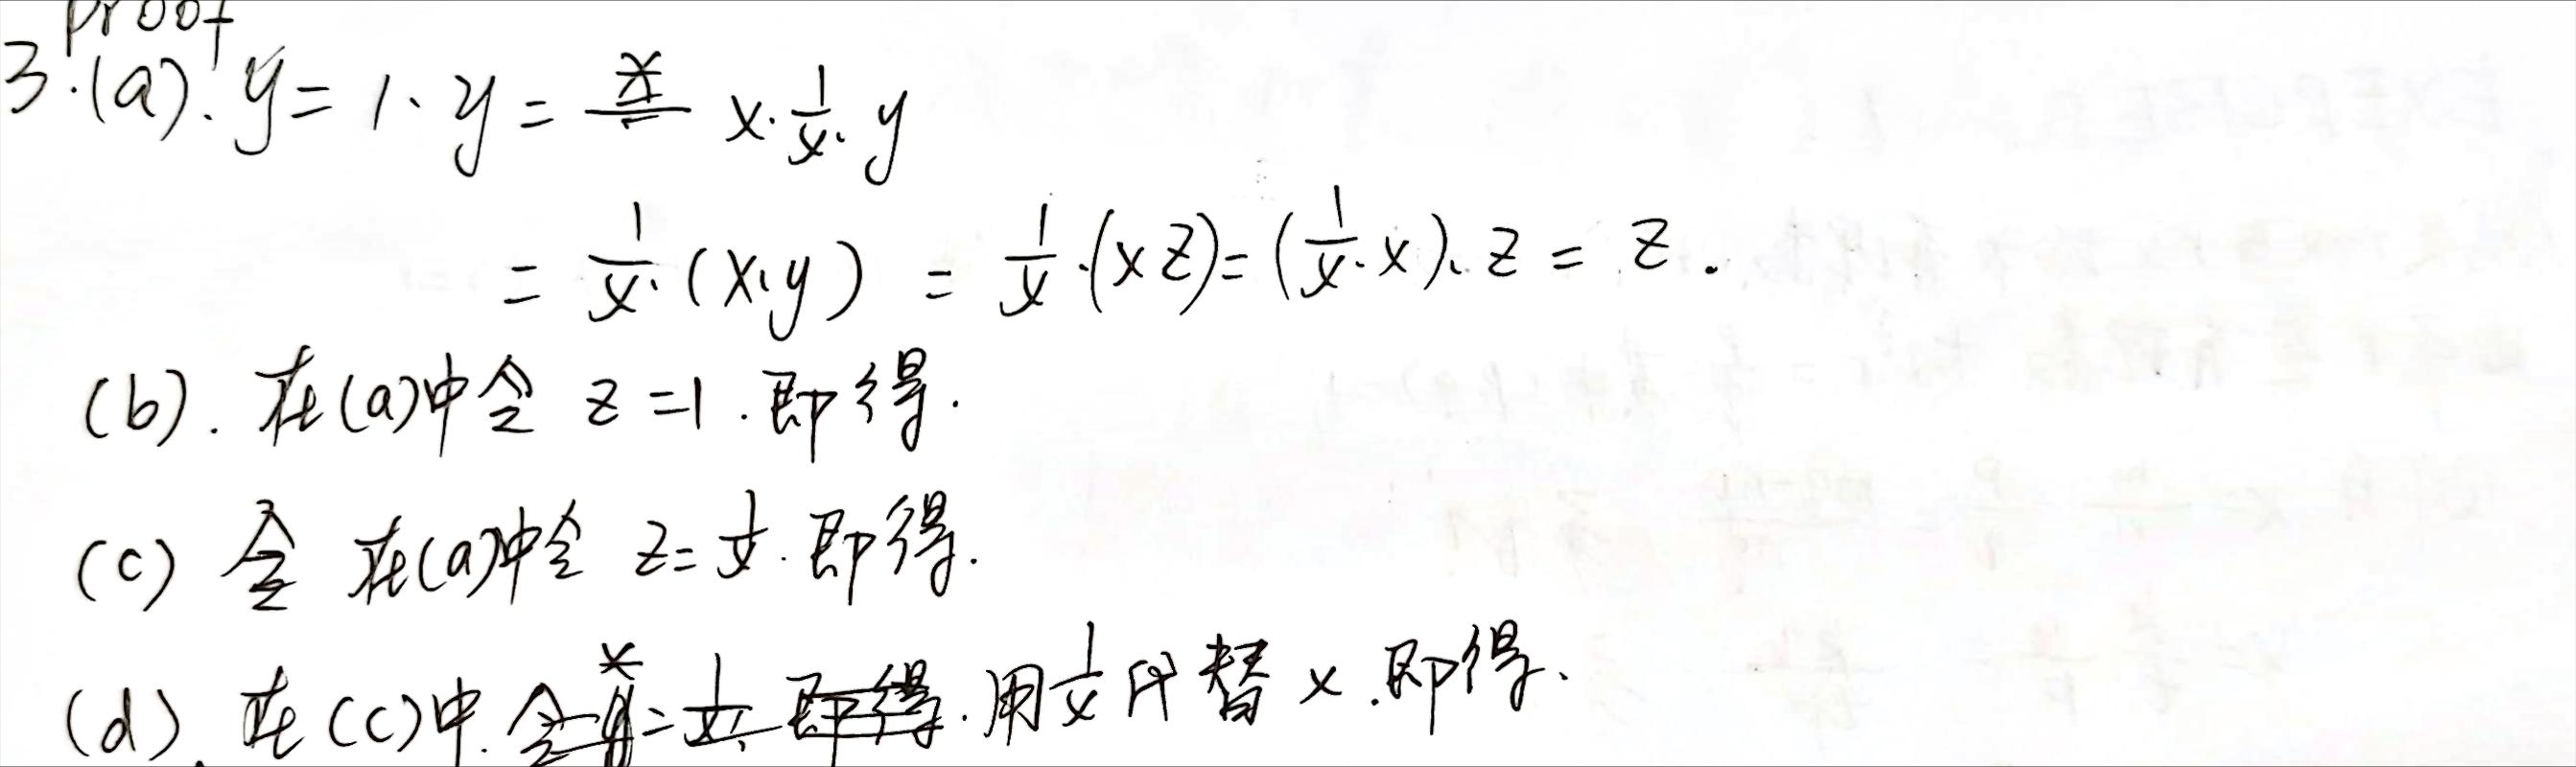 proof
3.(a). y = 1·y = x·1/x·y
= 1/x·(x·y) = 1/x·(xz) = (1/x·x)·z = z.
(b). 在(a)中令 z=1.即得.
(c) 令 在(a)中令 z=1/x.即得.
(d). 在(c)中.令x=1/x.即得.用1/x代替x.即得.